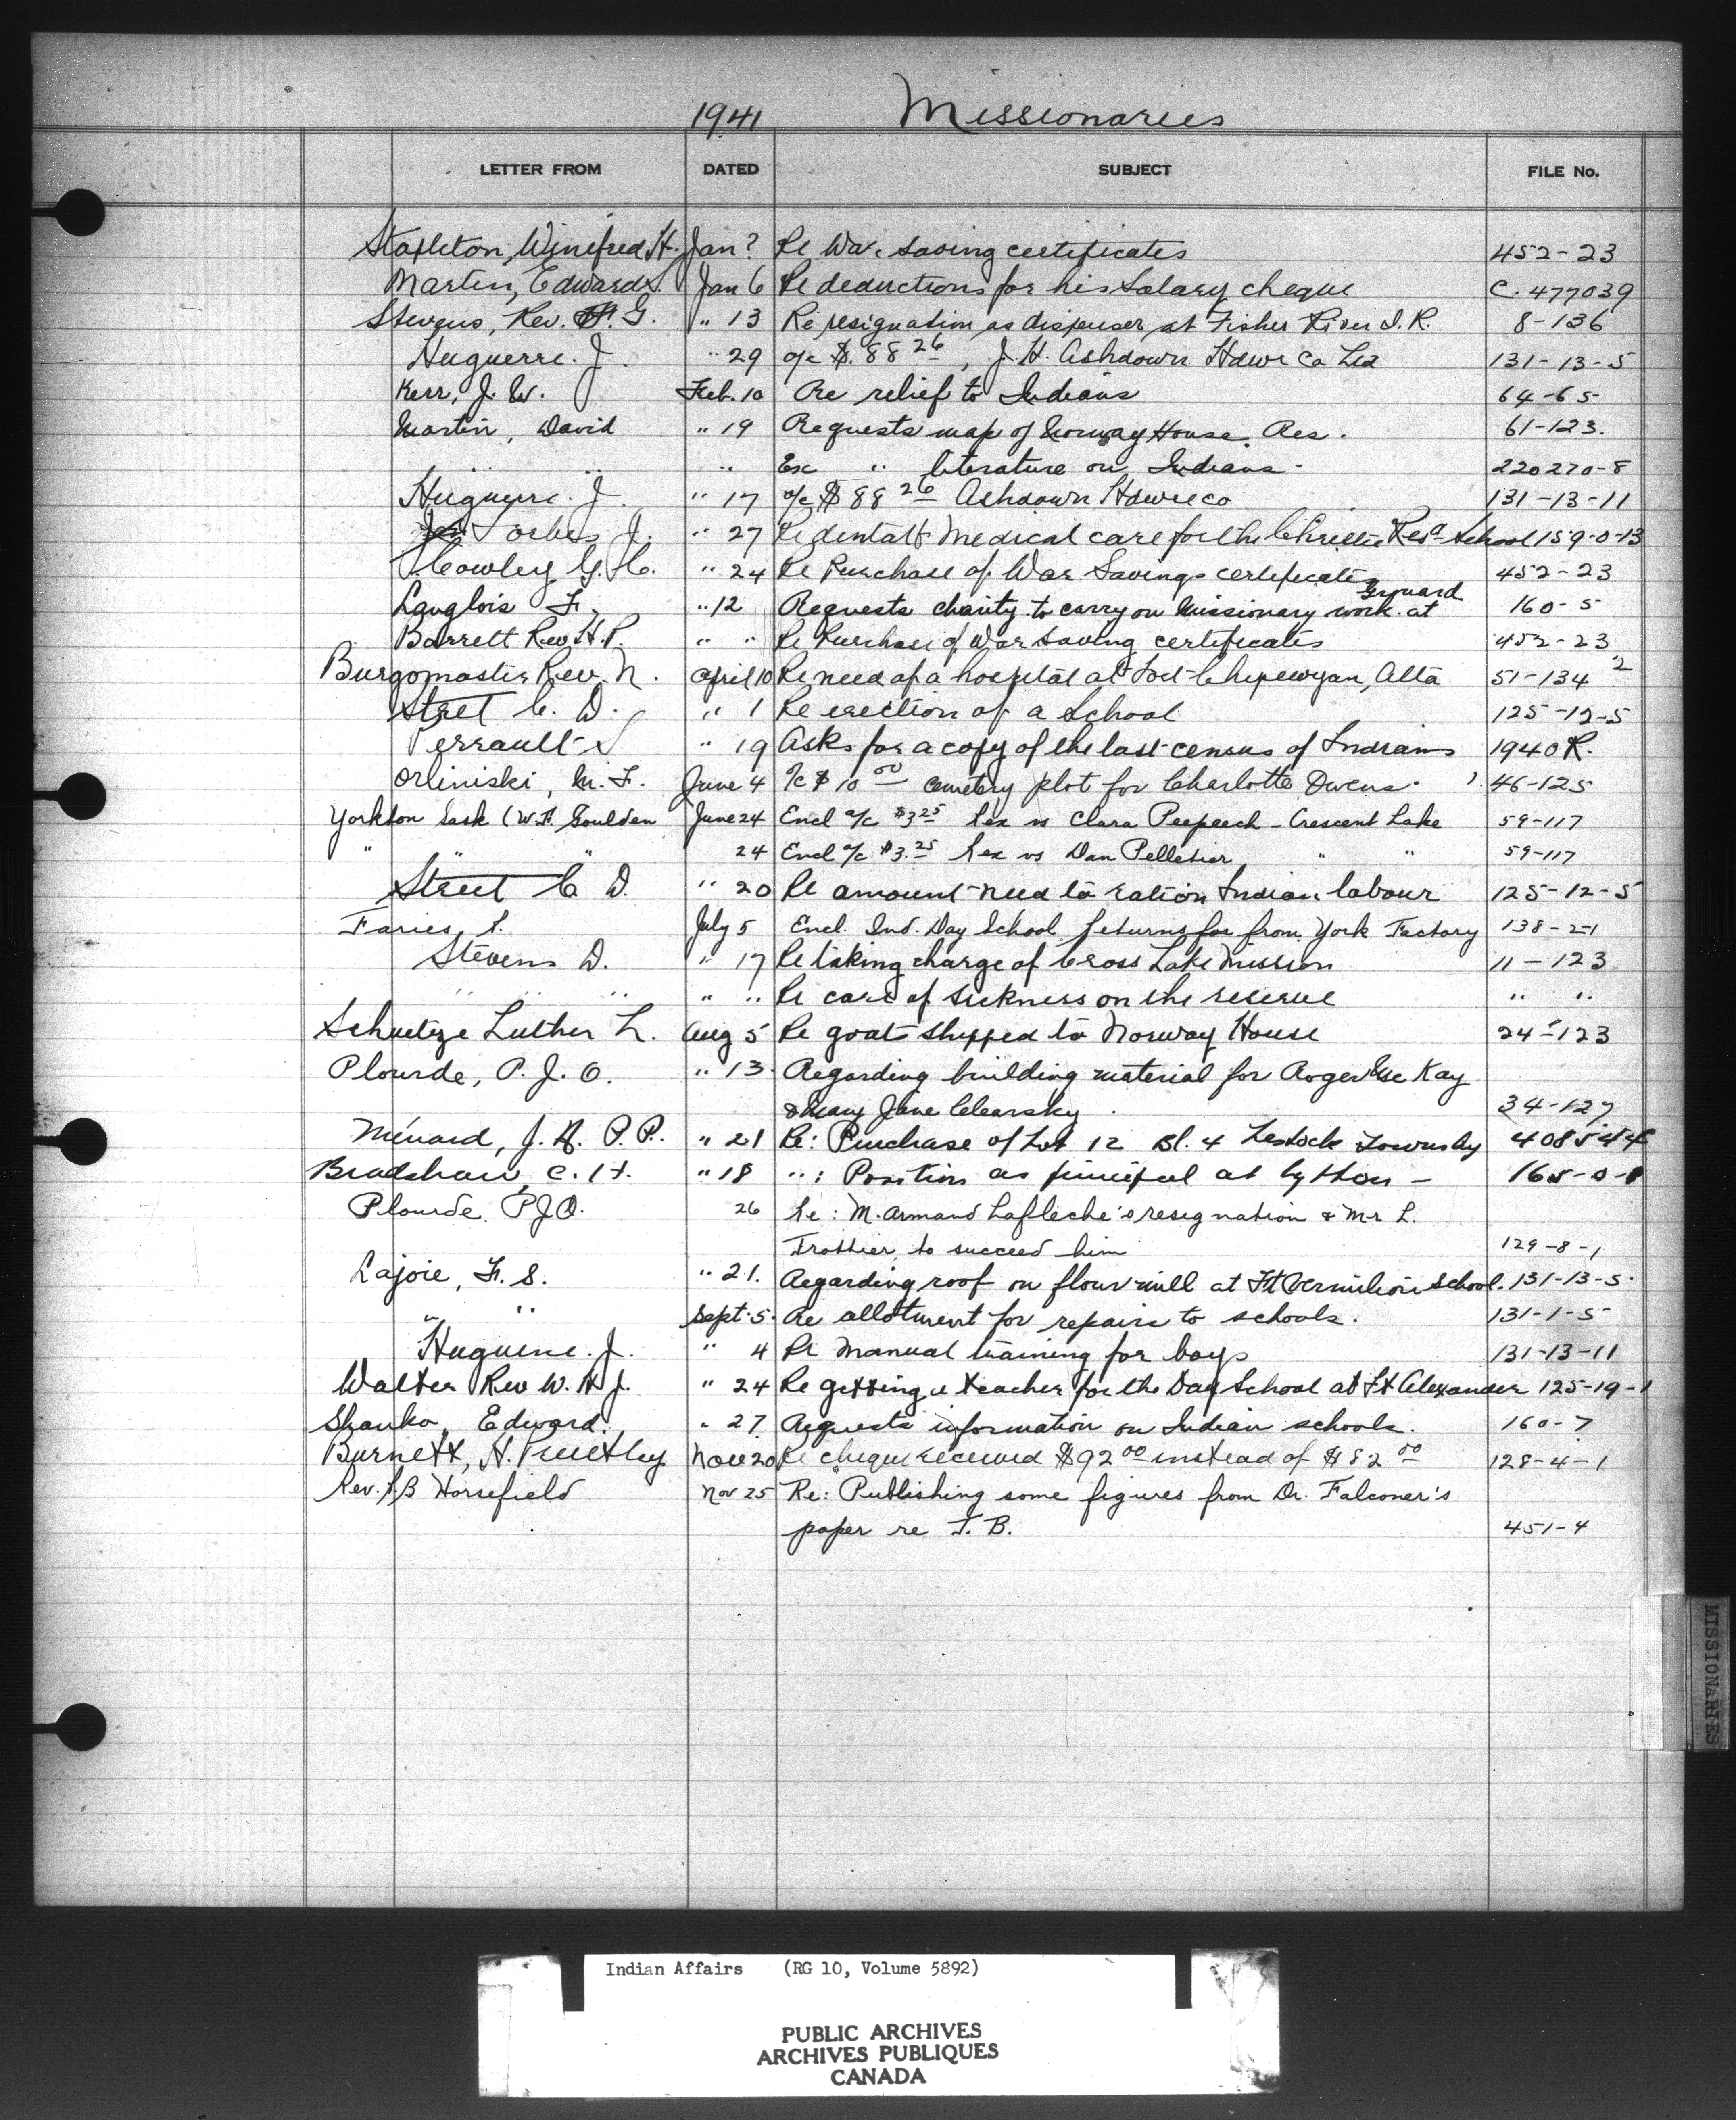 1941 Missionaries
LETTER FROM DATED SUBJECT FILE No.
Stapleton, Winifred H. Jan ? Re War saving certificates 452-23
Martin, Edward S. Jan 6 Re deductions for his Salary cheque C. 477039
Stevens, Rev. F. G. " 13 Re resignation as dispenser at Fisher River I. R. 8-136
Huguerre. J. " 29 a/c $. 88 26, J. H. Ashdown Hdwe Co Ltd 131-13-5
Kerr, J. W. Feb. 10 Re relief to Indians 64-65
Martin, David " 19 Requests map of Norway House. Res. 61-123.
" " " Enc " literature on Indians - 220270-8
Huguerre. J. " 17 a/c $88 26 Ashdown Hdwe Co 131-13-11
Forbes J. " 27 Re dental & Medical care for the Christie Resd School 159-0-13
Cowley G. C. " 24 Re Purchase of War Savings certificates 452-23
Langlois F. " 12 Requests charity to carry on Missionary work at Grouard 160-5
Barrett Rev. H. P. " " Re Purchase of War saving certificates 452-23
Burgomaster Rev. N. April 10 Re need of a hospital at Fort Chipewyan, Alta 51-134 2
Street C. D. " 1 Re erection of a School 125-12-5
Perrault S " 19 Asks for a copy of the last census of Indians 1940 R.
Orliniski, M. F. June 4 a/c $ 10 00 cemetery plot for Charlotte Owens. 46-125
Yorkton Sask (W. F. Goulden June 24 Encl a/c $3 25 Rex vs Clara Peepeech - Crescent Lake 59-117
" " " 24 Encl a/c $3. 25 Rex vs Dan Pelletier " " 59-117
Street C. D. " 20 Re amount need to ration Indian labour 125-12-5
Faries, R. July 5 Encl. Ind. Day School returns for from York Factory 138-21
Stevens D. " 17 Re taking charge of Cross Lake Mission 11-123
" " " " " Re care of sickness on the reserve " "
Schuetze Luther L. Aug 5 Re goats shipped to Norway House 24-123
Plourde, P. J. O. " 13. Regarding building material for Roger McKay
& Mary Jane Clearsky. 34-127
Ménard, J. A. P. P. " 21 Re: Purchase of Lot 12 Bl. 4 Lestock Townsity 408544
Bradshaw, C. H. " 18 " : Position as principal at Lytton - 165-0-1
Plourde, P. J. O. 26 Re: M. Armand Lafleche's resignation & Mr L.
Trottier, to succeed him 129-8-1
Lajoie, F. S. " 21. Regarding roof on flour mill at Ft Vermilion School. 131-13-5.
" " Sept. 5. Re allotment for repairs to schools. 131-1-5
Huguerre. J. " 4 Re Manual training for boys 131-13-11
Walter Rev W. H. J. " 24 Re getting a teacher for the Day School at Ft Alexander 125-19-1
Shanko, Edward. " 27. Requests information on Indian schools. 160-7
Burnett, H. Nov 20 Re cheque received $92 00 instead of $82 00 128-4-1
Rev. A. B Horsefield Nov 25 Re: Publishing some figures from Dr. Falconer's
paper re T. B. 451-4
MISSIONARIES
Indian Affairs (RG 10, Volume 5892)
PUBLIC ARCHIVES
ARCHIVES PUBLIQUES
CANADA